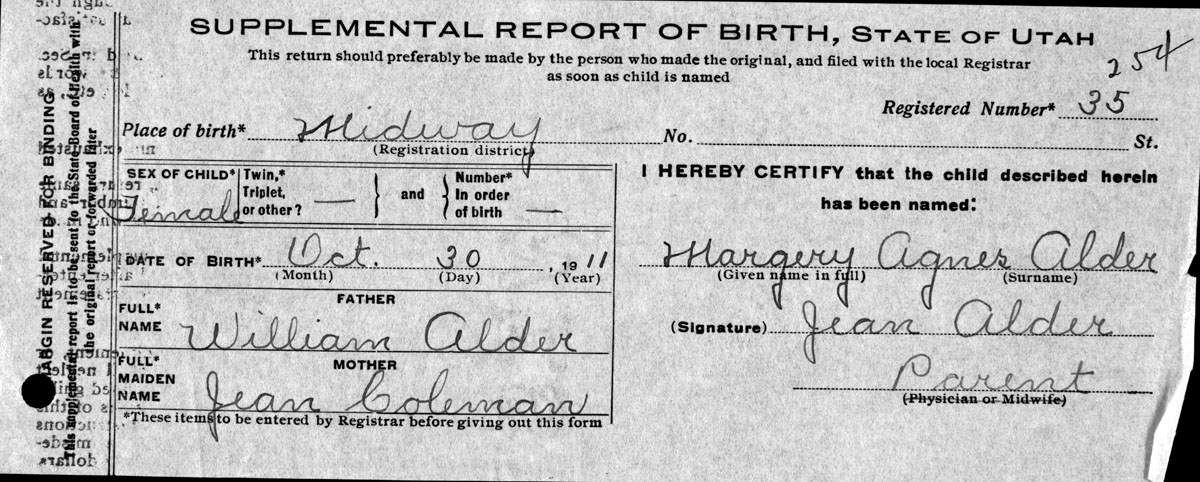 SUPPLEMENTAL REPORT OF BIRTH, STATE OF UTAH
This return should preferably be made by the person who made the original, and filed with the local Registrar
as soon as child is named
254
Registered Number* 35
Place of birth* Midway No. St.
(Registration district)
SEX OF CHILD* Female
Twin,*
Triplet,
or other? —
and
Number*
In order
of birth —
DATE OF BIRTH* Oct. 30, 1911
(Month) (Day) (Year)
FATHER
FULL*
NAME William Alder
MOTHER
FULL*
MAIDEN
NAME Jean Coleman
*These items to be entered by Registrar before giving out this form
I HEREBY CERTIFY that the child described herein
has been named:
Margery Agnes Alder
(Given name in full) (Surname)
(Signature) Jean Alder
Parent
(Physician or Midwife)
ARGIN RESERVED FOR BINDING
This supplemental report is to be sent to the State Board of Health with
the original report or forwarded later